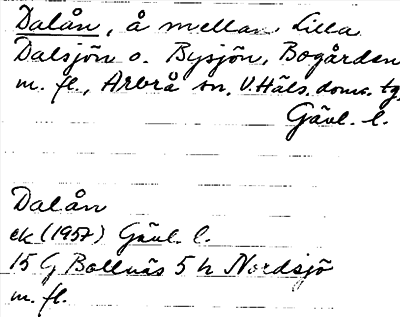 Dalån, å mellan Lilla
Dalsjön o. Bysjön, Bogården
m. fl., Arbrå sn, V. Häls. doms. tg.
Gävl. l.
Dalån
ek (1957) Gävl. l.
15 G Bollnäs 5 h Nordsjö
m. fl.